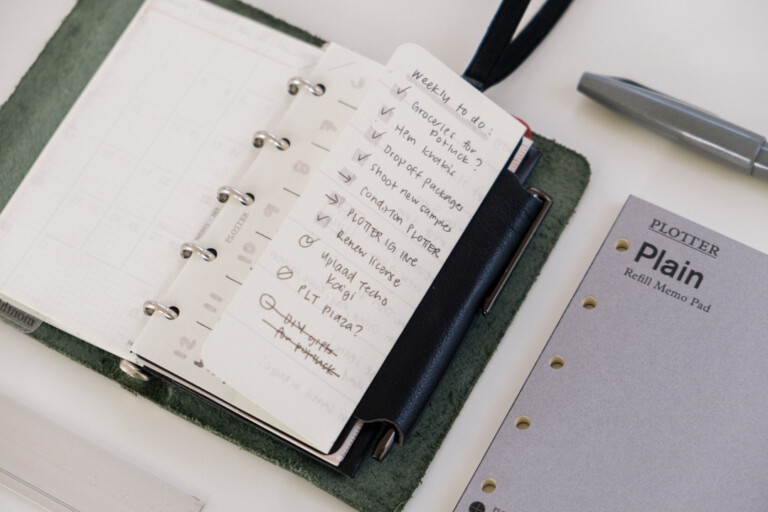 Weekly to do:
Groceries for
potluck?
Hem
Drop off packages
Shoot new samples
Condition PLOTTER
PLOTTER IG live
Renew license
Upload Techo
Kaigi
PLT Plaza?
DIY gifts
for potluck
PLOTTER
PLOTTER
Plain
Refill Memo Pad